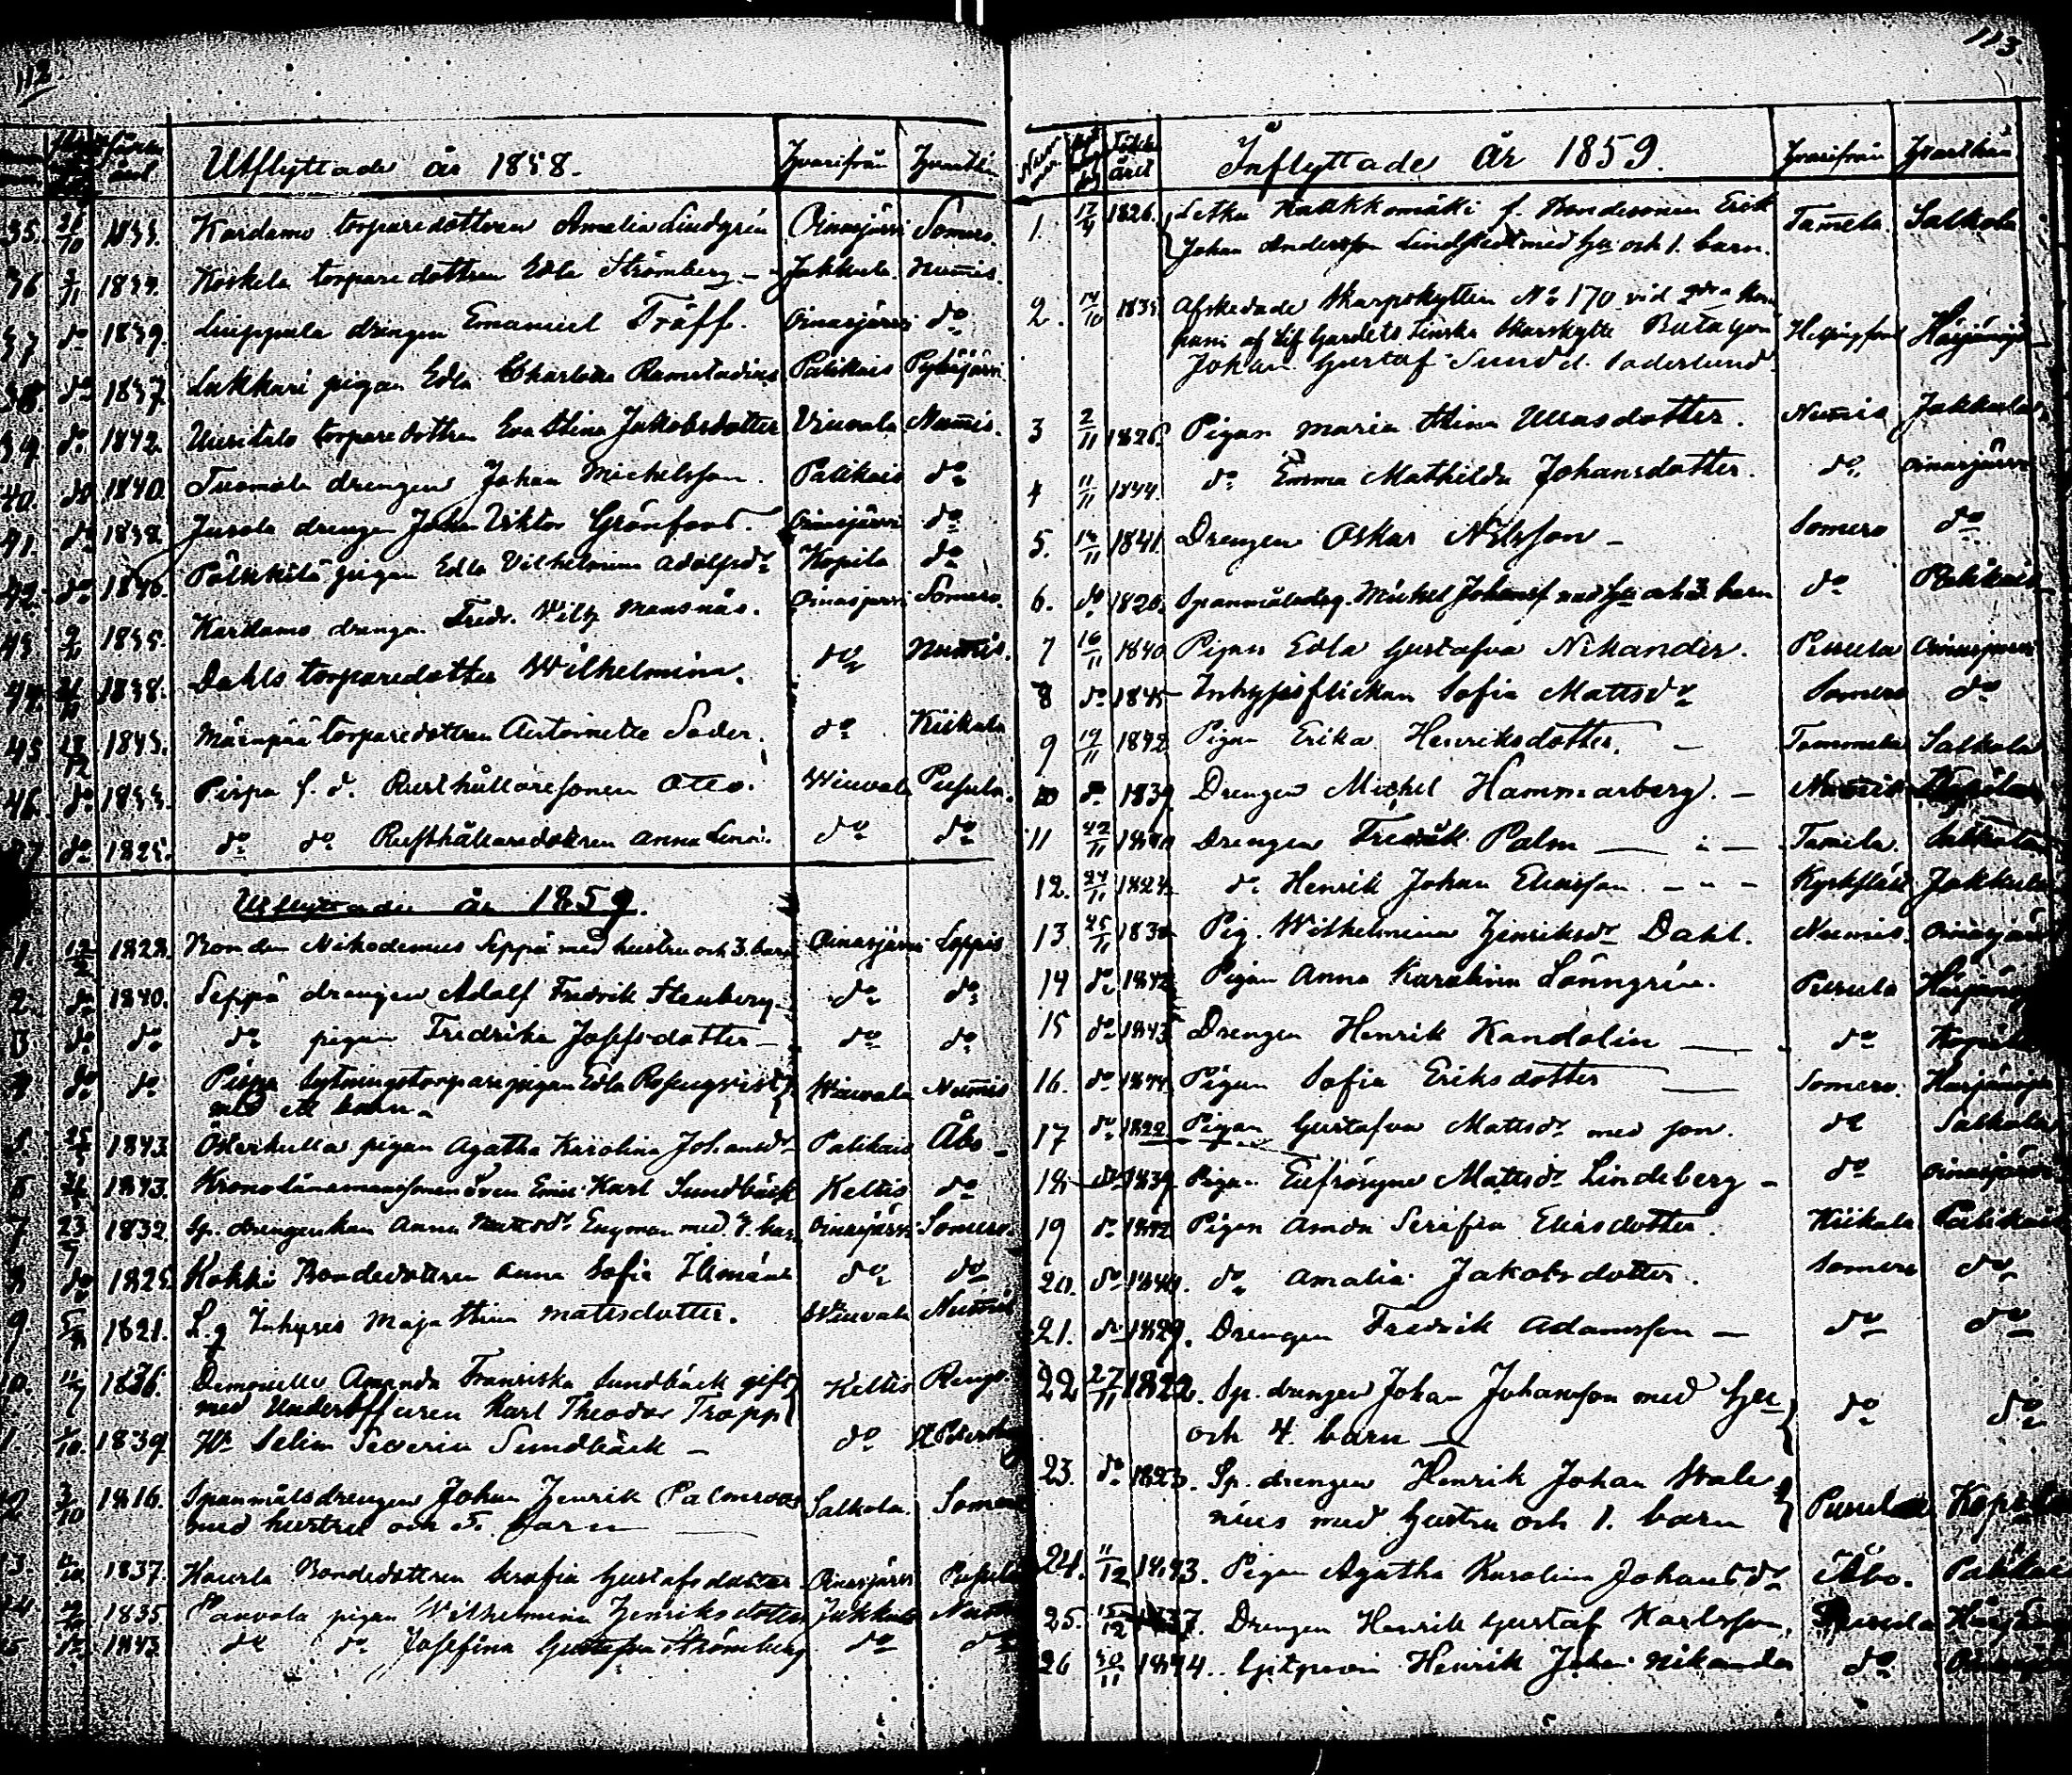 112.
Utflyttade år 1858. Hvarifrån Hvarthän
35. 1855. Kardamo torparedottren Amelia Lindgrén Oinasjärvi Somero.
36 3/11 1839. Koskela torparedottren Edla Strömberg - Jakkula. Nummis.
37 do 1839. drengen Emanuel Träff. Oinasjärvi do
38. do 1837. Lukkari pigan Edla Charlotta Palikais Pyhäjärvi
39. do 1842. Uusitalo torparedottren Eva Stina Jakobsdotter Viuvala Nummis.
40. do 1840. Tuomola drengen Johan Michelsson. Palikais do
41. do 1838. Jusola drengen Johan Viktor Grönfors. Oinasjärvi do
42. do 1840. pigan Edla Vilhelmina Adolfsdr Kopila do
43 1835. Kardamo drengen Fredr. Wilh Mansnäs. Oinasjärvi Somero.
44. 1838. Dahls torparedotter Wilhelmina. do Nummis.
45 1845. torparedottren Antoinette Söder. do Kiikala
46. do 1833. Pispa f. d. Rusthållaresonen Otto. Wiuvala Pusula.
47 do 1825. do do Rusthållaredottren Anna Lena. do do
Utflyttade år 1859.
1. 12/2 1828. Bonden Nikodemus Seppä med hustru och 3. barn Oinasjärvi Loppis
2. do 1840. Seppä drengen Adolf Fredrik Stenberg. do do
3 do do do pigan Fredrika Josefsdotter - do do
4 do do Pispa sytningstorpare pigan Edla Rosenqvist Wiuvala Nummis
med ett barn.
5. 1843. Österkulla pigan Agatha Karolina Johansdr Palikais Åbo
6 1843. Kronolänsmanssonen Sven Emil Karl Sundbäck Keltis do
7 23/7 1832. Sp. drengenkan Anna Mattsdr Engman med barn Oinasjärvi Somero.
8 do 1825. Kokki Bondedottren Anna Sofia do do
9 1821. L.g Inhyses Maja Stina Mattsdotter. Wiuvala Nummis
10. 1836. Demoiselle Amanda Franciska Sundbäck gift Keltis
med Underofficeren Karl Theodor Tropp
11. 1839 Selim Severin Sundbäck - do St Petersburg
12 3/10 1816. Spanmålsdrengen Johan Henrik Palmroos Salkola. Somero
med hustru och 5. barn
13. 1837. Bondedottren Serafia Gustafsdotter Oinasjärvi Pusula
14 1835 Paavola pigan Wilhelmina Henriksdotter Jakkula Nummis
15 do 1843 do do Josefina Gustafva Strömberg do do
113.
Nummer Inflyttade år 1859. Hvarifrån Hvarthän
1. 17/9 1826. f. Bondesonen Erik Tamela. Salkola
Johan Andersson Lindstedt med hu och 1. barn.
2. 14/10 Afskedade Skarpskytten No 170 vid 2dra Kom Helsingfors Härjänoja
pani af Lif Gardets Finska Skarskytte Bataljon
Johan Gustaf Sund d. Söderlund
3 2/11 1826. Pigan Maria Stina Ulla­sdotter. Nummis Jakkula
4 11/11 1844. do Emma Mathilda Johansdotter. do. Oinasjärvi
5. 14/11 1841. Drengen Oskar Nilsson - Somero do
6. do 1820. Spanmålsdrg. Michel Johanss. med hu och 3. barn do Palikais
7 16/11 1840 Pigan Edla Gustafva Nikander. Pusula Oinasjärvi
8 do 1845 Inhysesflickan Sofia Mattsdr Somero do
9 19/11 1842 Pigan Erika Henriksdotter. - Tammela Salkola
10 do 1839 Drengen Michel Hammarberg. - Nummis Kopila
11 22/11 1840 Drengen Fredrik Palm Tamela. Salkola
12. 24/11 1827. do Henrik Johan Eliasson. Kyrkslätt Jakkula
13 25/11 1830 Pig. Wilhelmina Henriksdr Dahl. Nummis. Oinasjärvi
14 do 1842 Pigan Anna Karolina Lönngrén. Pusula Härjänoja
15 do 1843 Drengen Henrik Kandolin do Kopila
16. do 1844. Pigan Sofia Eriksdotter Somero. Härjänoja
17 do 1822 Pigan Gustafva Mattsdr med son. do Salkola
18 do 1839 Pigan Eufrosyne Mattsdr Lindeberg - do Oinasjärvi
19 do 1842 Pigan Amda Serafia Eliasdotter. Kiikala Palikais
20. do 1840. do Amalia Jakobsdotter. Somero do
21. do 1829. Drengen Fredrik Adamsson - do do
22 27/11 1822. Sp. drengen Johan Johansson med hu do do
och 4. barn -
23. do 1823. Sp. drengen Henrik Johan Wale Pusula Kopila
nius med hustru och 1. barn
24. 11/12 1843. Pigan Agatha Karolina Johansdr Åbo. Palikais
25. 15/12 1837. Drengen Henrik Gustaf Karlsson, Pusula
26 30/11 1844. Henrik Johan Nikander do